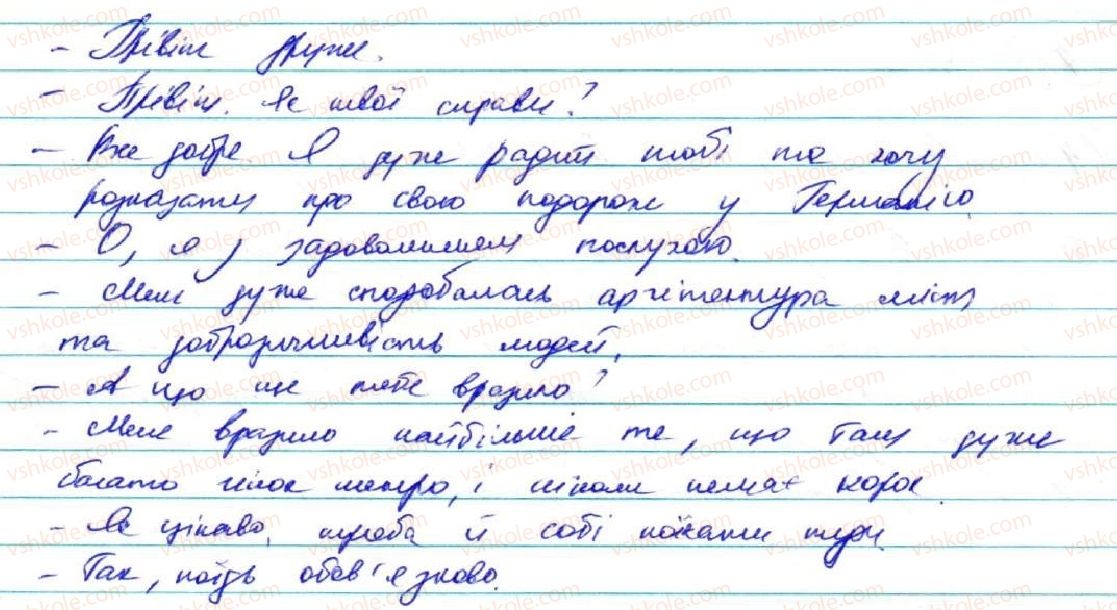 - Привіт друже.
- Привіт. Як твої справи?
- Вже добре. Я дуже радий тобі та хочу
розказати про свою подорож у Германію.
- О, я з задоволенням послухаю.
- Мені дуже сподобалась архітектура міст
та доброзичливість людей.
- А що ще тебе вразило?
- Мене вразило найбільше те, що там дуже
багато гілок метро, і ніколи немає корок.
- Як цікаво, треба й собі поїхати туди.
- Так, поїдь обов'язково.